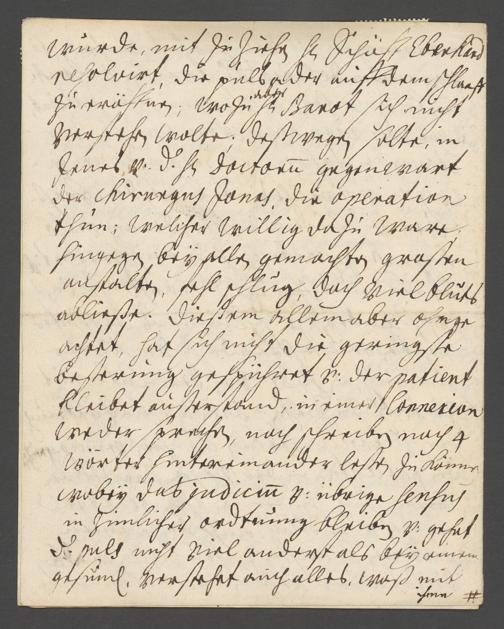 wurde, mit Zu Ziehn H Schöff Eberhard
resolvirt, die puls ader auff dem schlaff
Zu eröffnen; wozu H Barot sich nicht
verstehen wolte. deßwegen solte, in
Jenes, v. d. H doctorn gegenwart
der chirurgus Jones, die operation
thun; welcher willig dazu ware.
hingegen bey allen gemachten grosen
anstalten, fehl schlug, doch viel bluts
abließe. dießem allem aber ohnge
achtet, hat sich nicht die geringste
beßerung gespühret v: der patient
bleibet außerstand, in einer Connexion
weder sprechen, noch schreiben noch 4
wörter hintereinander lesen zu können
wobey das judiciu v: übrige sensus
in Zimlicher ordtnung bleiben v: gehet
d. puls nicht viel anderst als bey einem
gesund. verstehet auch alles, waß mit
ihme #